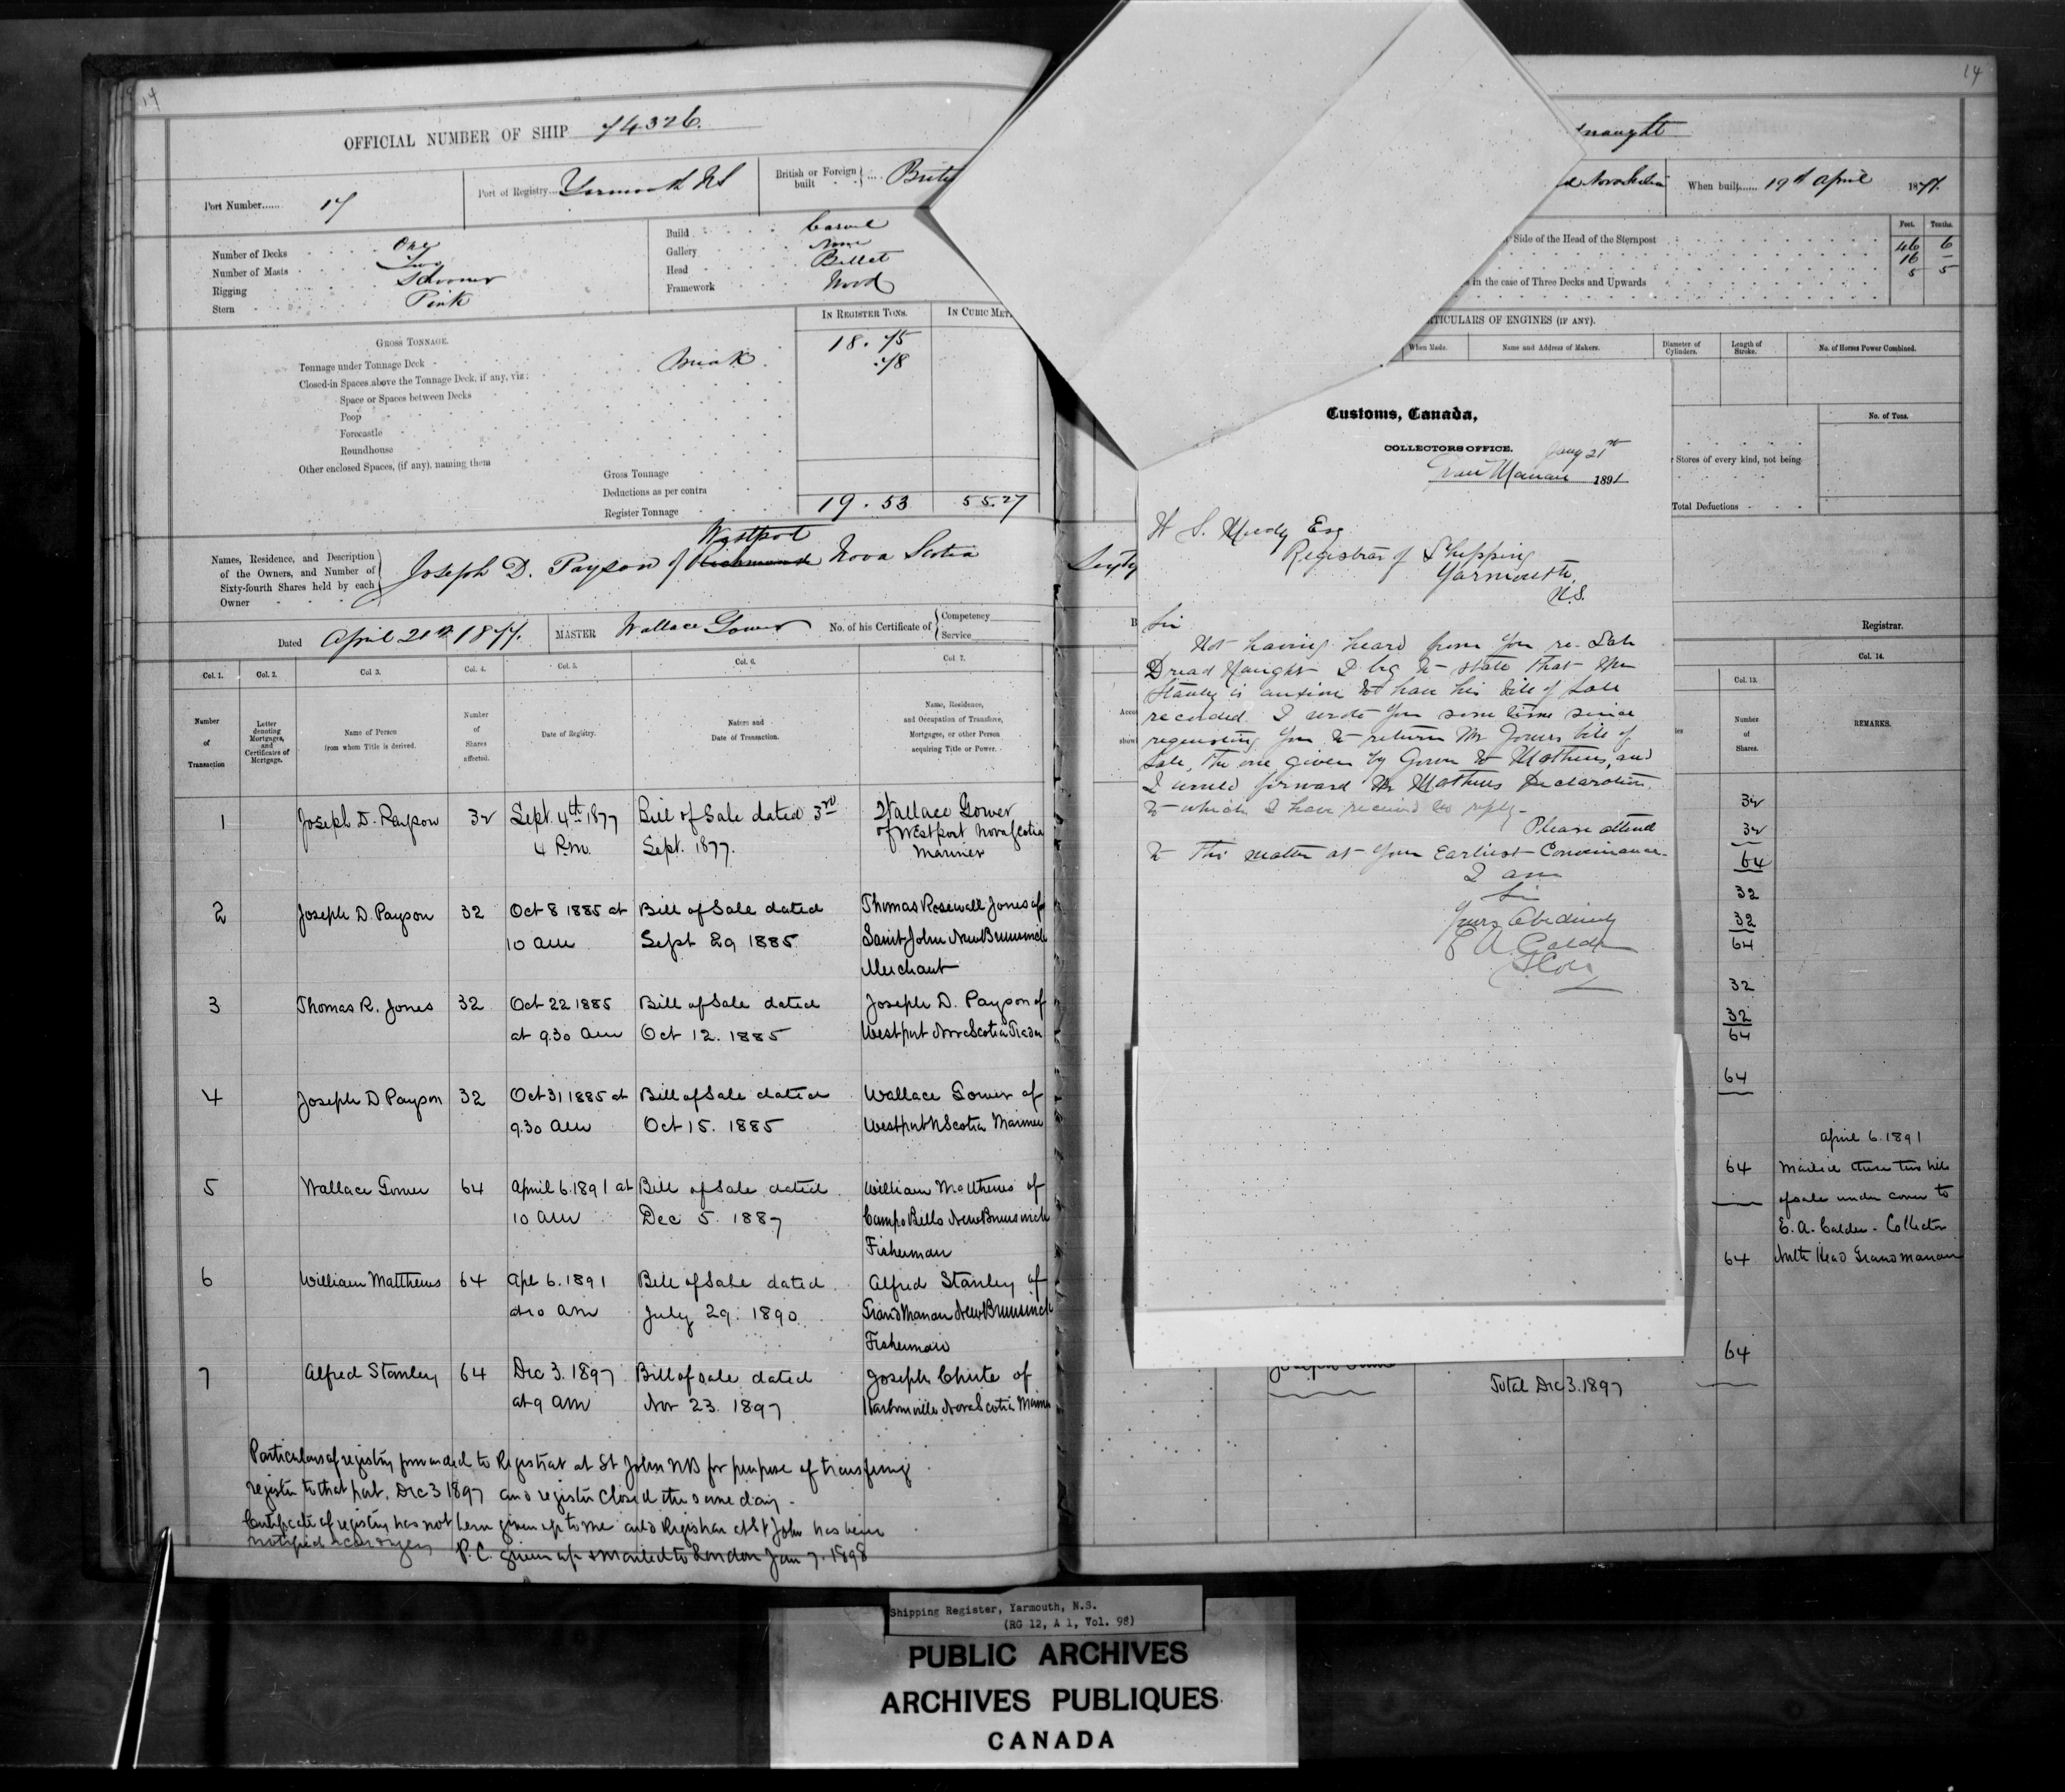 14
OFFICIAL NUMBER OF SHIP 74326.
Port Number...... 17
Port of Registry.... Yarmouth NS
British or Foreign built .... Brit
Number of Decks One
Number of Masts Two
Rigging Schooner
Stern Pink
Build Carvel
Gallery None
Head Billet
Framework Wood
IN REGISTER TONS.
IN CUBIC MET
GROSS TONNAGE.
Tonnage under Tonnage Deck 18.75
Closed-in Spaces above the Tonnage Deck, if any, viz: Break .78
Space or Spaces between Decks
Poop
Forecastle
Roundhouse
Other enclosed Spaces, (if any), naming them
Gross Tonnage
Deductions as per contra
Register Tonnage 19.53 55.27
Names, Residence, and Description
of the Owners, and Number of
Sixty-fourth Shares held by each
Owner
Westport
Joseph D. Payson of Richmond Nova Scotia
Dated April 21st 1877. MASTER Wallace Gower No. of his Certificate of Competency
Service
Col. 1. Col. 2. Col 3. Col. 4. Col. 5. Col. 6. Col. 7.
Number of Transaction
Letter denoting Mortgages, and Certificates of Mortgage.
Name of Person from whom Title is derived.
Number of Shares affected.
Date of Registry.
Nature and Date of Transaction.
Name, Residence, and Occupation of Transferee, Mortgagee, or other Person acquiring Title or Power.
1 Joseph D. Payson 32 Sept. 4th 1877 Bill of Sale dated 3rd Wallace Gower
4 P.m. Sept. 1877. of Westport Nova Scotia
Mariner
2 Joseph D. Payson 32 Oct 8 1885 at Bill of Sale dated Thomas Rosewall Jones of
10 am Sept 29 1885 Saint John New Brunswick
Merchant
3 Thomas R. Jones 32 Oct 22 1885 Bill of Sale dated Joseph D. Payson of
at 9.30 am Oct 12. 1885 Westport Nova Scotia Trader
4 Joseph D Payson 32 Oct 31 1885 at Bill of Sale dated Wallace Gower of
9.30 am Oct 15. 1885 Westport N Scotia Mariner
5 Wallace Gower 64 April 6. 1891 at Bill of Sale dated William Matthews of
10 am Dec 5. 1887 Campo Bello New Brunswick
Fisherman
6 William Matthews 64 Apl 6. 1891 Bill of Sale dated Alfred Stanley of
at 10 am July 29. 1890 Grand Manan New Brunswick
Fisherman
7 Alfred Stanley 64 Dec 3. 1897 Bill of sale dated Joseph Chute of
at 9 am Nov 23. 1897 Harbourville Nova Scotia Marine
Particulars of registry forwarded to Registrar at St John NB for purpose of transferring
register to that port, Dec 3 1897 and register closed the same day.
Certificate of registry has not been given up to me and Registrar at St John has been
notified
P.C. given up & mailed to London Jan 7. 1898
14
naught
d Nova Scotia
When built...... 19th April 1877.
Feet. Tenths.
Side of the Head of the Sternpost 46 6
16 –
5 5
in the case of Three Decks and Upwards
TICULARS OF ENGINES (IF ANY).
When Made.
Name and Address of Makers.
Diameter of Cylinders.
Length of Stroke.
No. of Horses Power Combined.
No. of Tons.
Stores of every kind, not being
Total Deductions
Sixty
Registrar.
Col. 13.
Col. 14.
Number of Shares.
REMARKS.
Customs, Canada,
COLLECTORS OFFICE.
Jany 21st
Grand Manan 1891
H S. Moody Esq
Registrar of Shipping
Yarmouth,
N.S.
Sir
Not having heard from you re. Sch
Dread Naught I beg to state that Mr
Stanley is anxious to have his bill of Sale
recorded. I wrote you some time since
requesting you to return Mr Gowers bill of
Sale, the one given by Gower to Mathews, and
I would forward Mr Mathews Declaration.
to which I have received no reply-
Please attend
to this matter at your Earliest Convenience.
I am
Sir
Yours Obediently
E A. Calder
32
32
64
32
32
64
32
32
64
64
64
64
64
April 6. 1891
Mailed these two bills
of sale under cover to
E. A. Calder - Collector
North Head Grand Manan
Total Dec 3. 1897
Shipping Register, Yarmouth, N.S.
(RG 12, A 1, Vol. 98)
PUBLIC ARCHIVES
ARCHIVES PUBLIQUES
CANADA